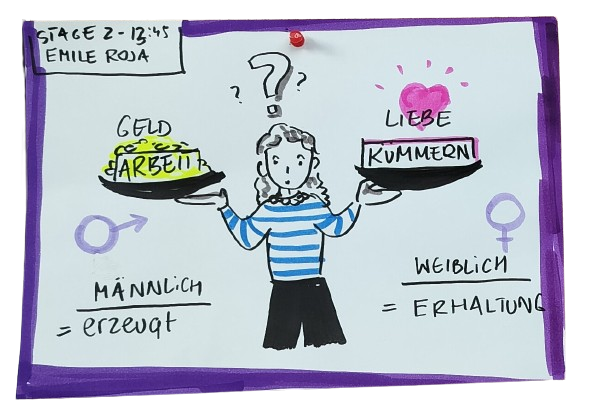 STAGE 2 - 13:45
EMILE ROJA
?
?
?
GELD
ARBEIT
LIEBE
KÜMMERN
MÄNNLICH
= erzeugt
WEIBLICH
= ERHALTUNG